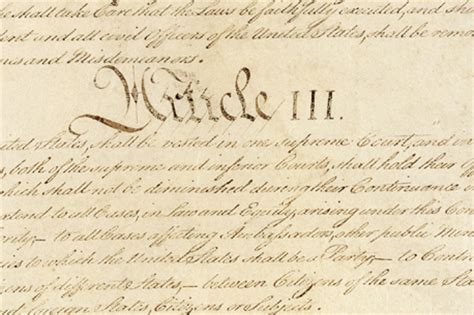 he shall take Care that the Laws be faithfully executed, and sha
dent and all civil Officers of the United States, shall be remo
ns and Misdemeanors.
Article III.
nited States, shall be vested in one supreme Court, and in
s, both of the supreme and inferior Courts, shall hold their
hich shall not be diminished during their Continuance
xtend to all Cases, in Law and Equity, arising under this Con
ority;— to all Cases affecting Ambassadors, other public Min
ies to which the United States shall be a Party;— to Contr
zens of different States,— between Citizens of the same Sta
foreign States, Citizens or Subjects.